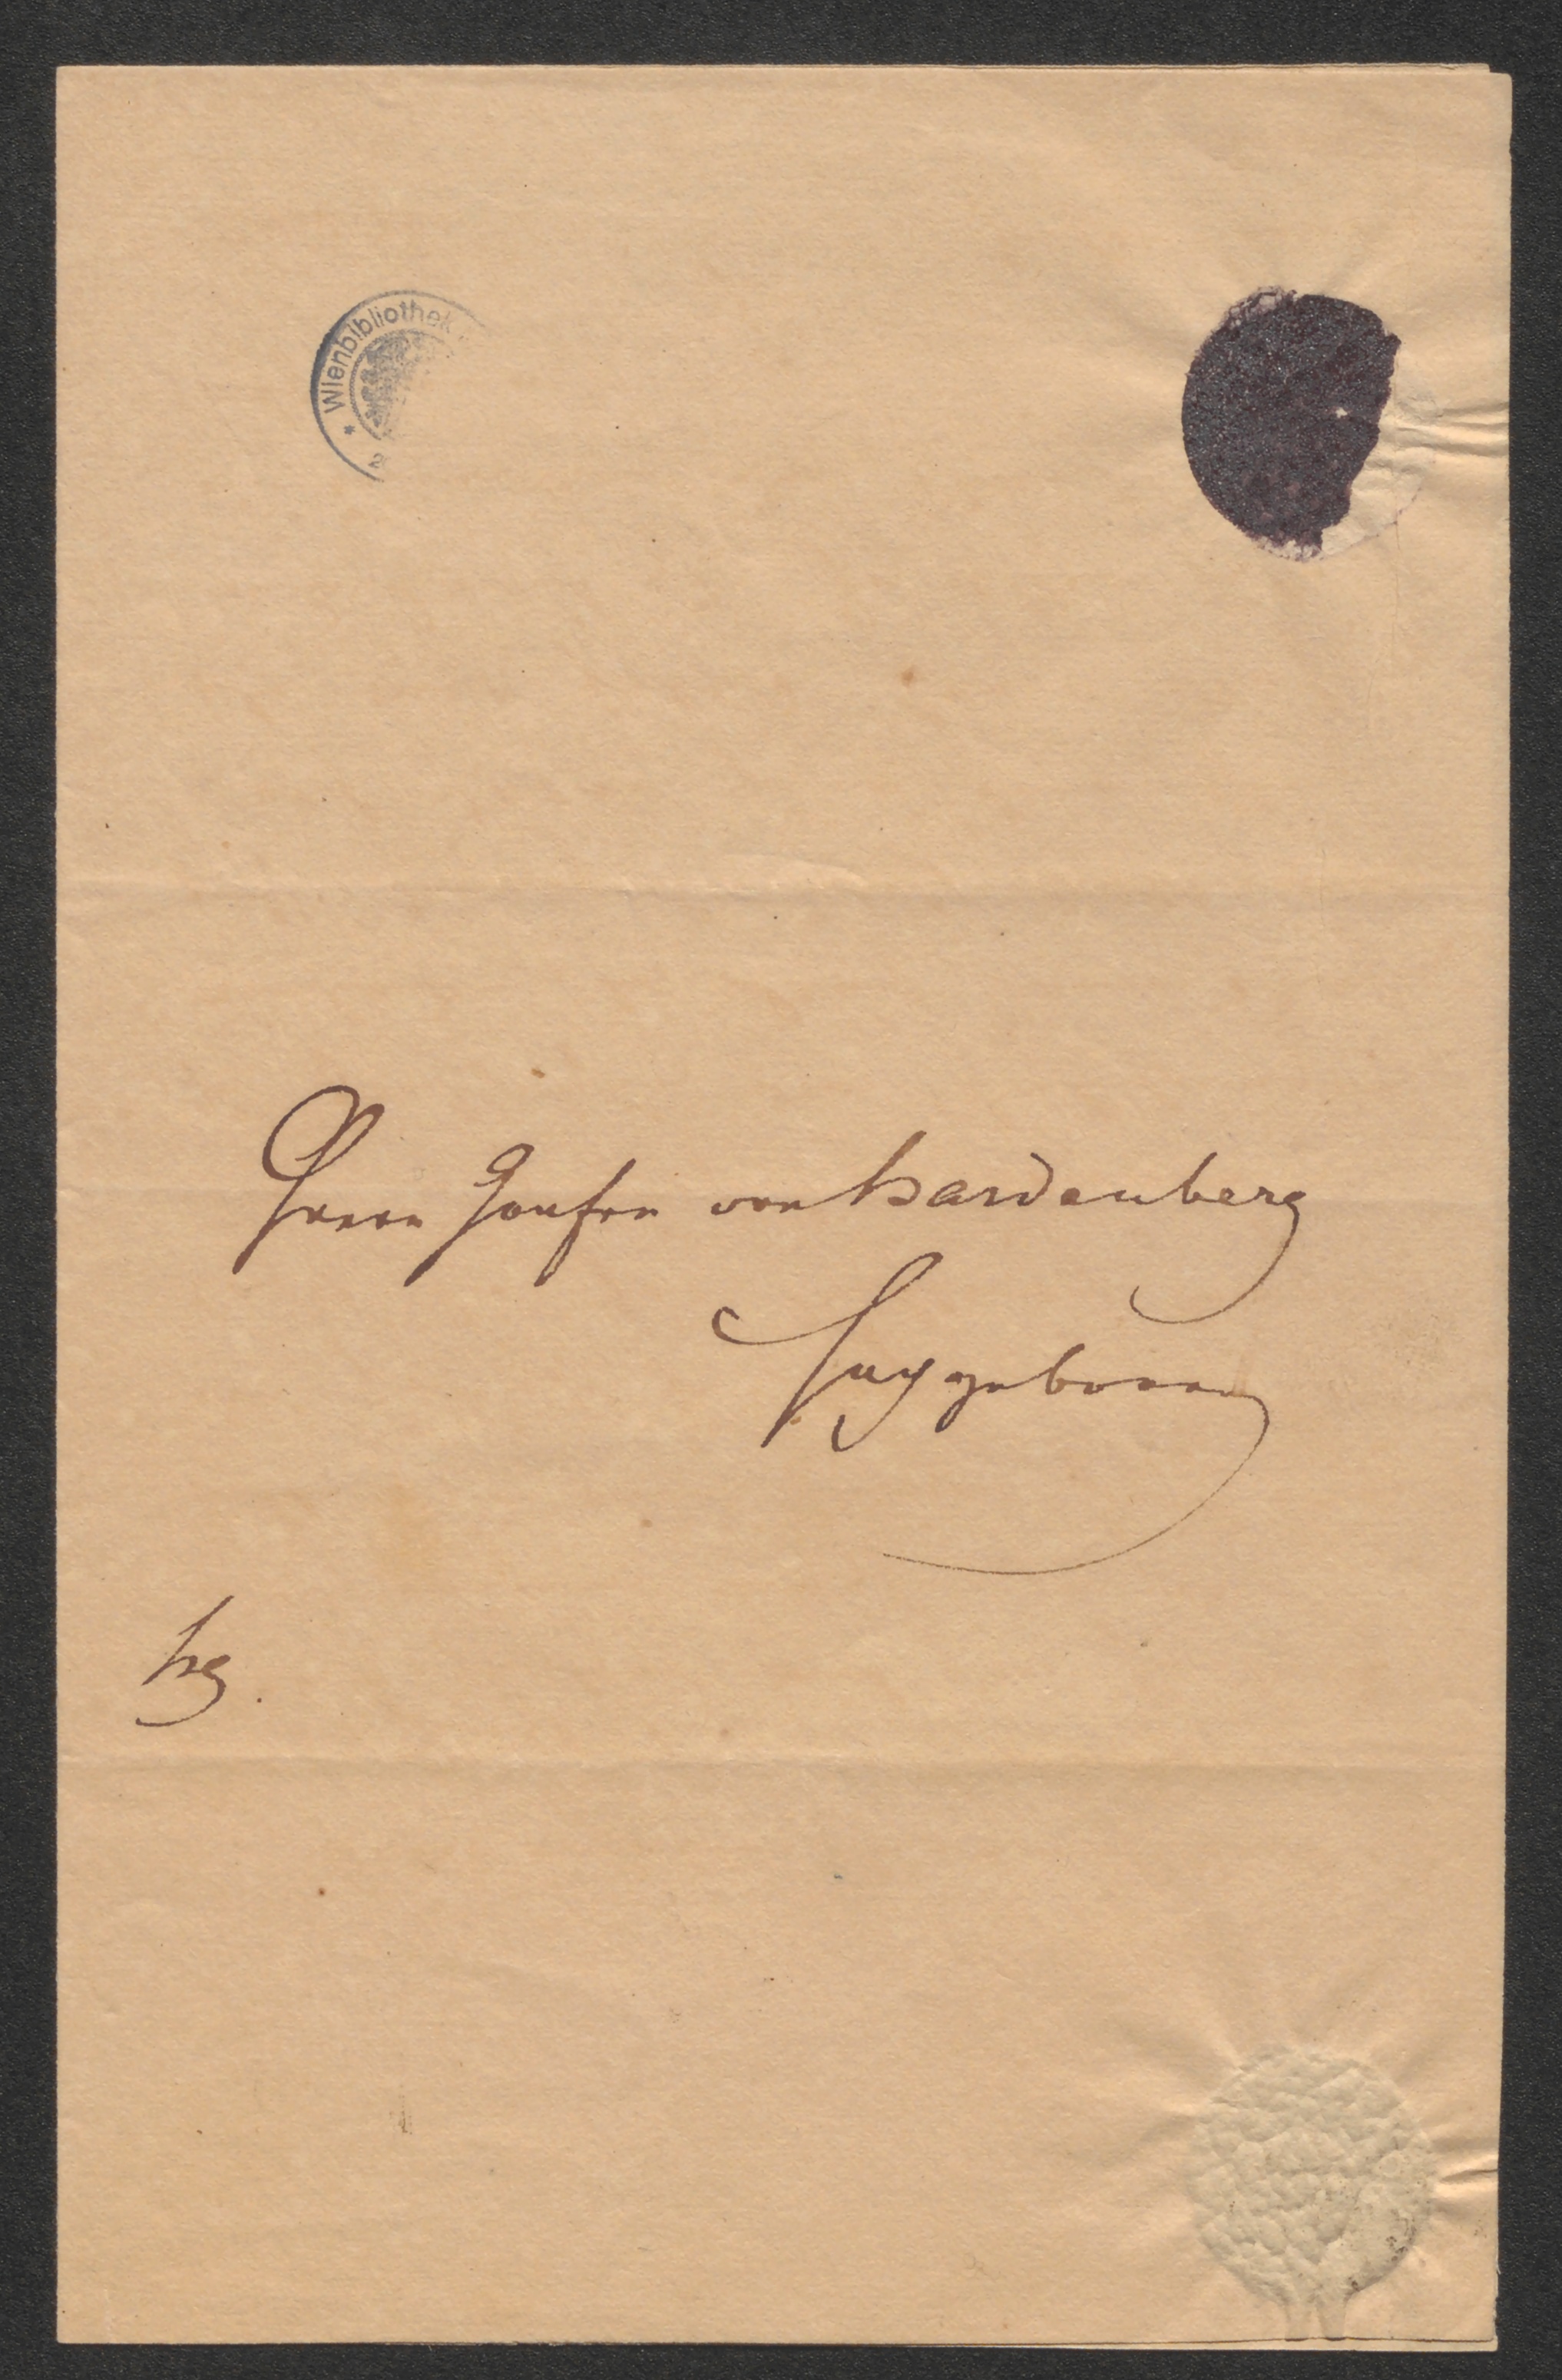 Wienbibliothek
Herrn Grafen von Hardenberg
Hochgeboren
hg.